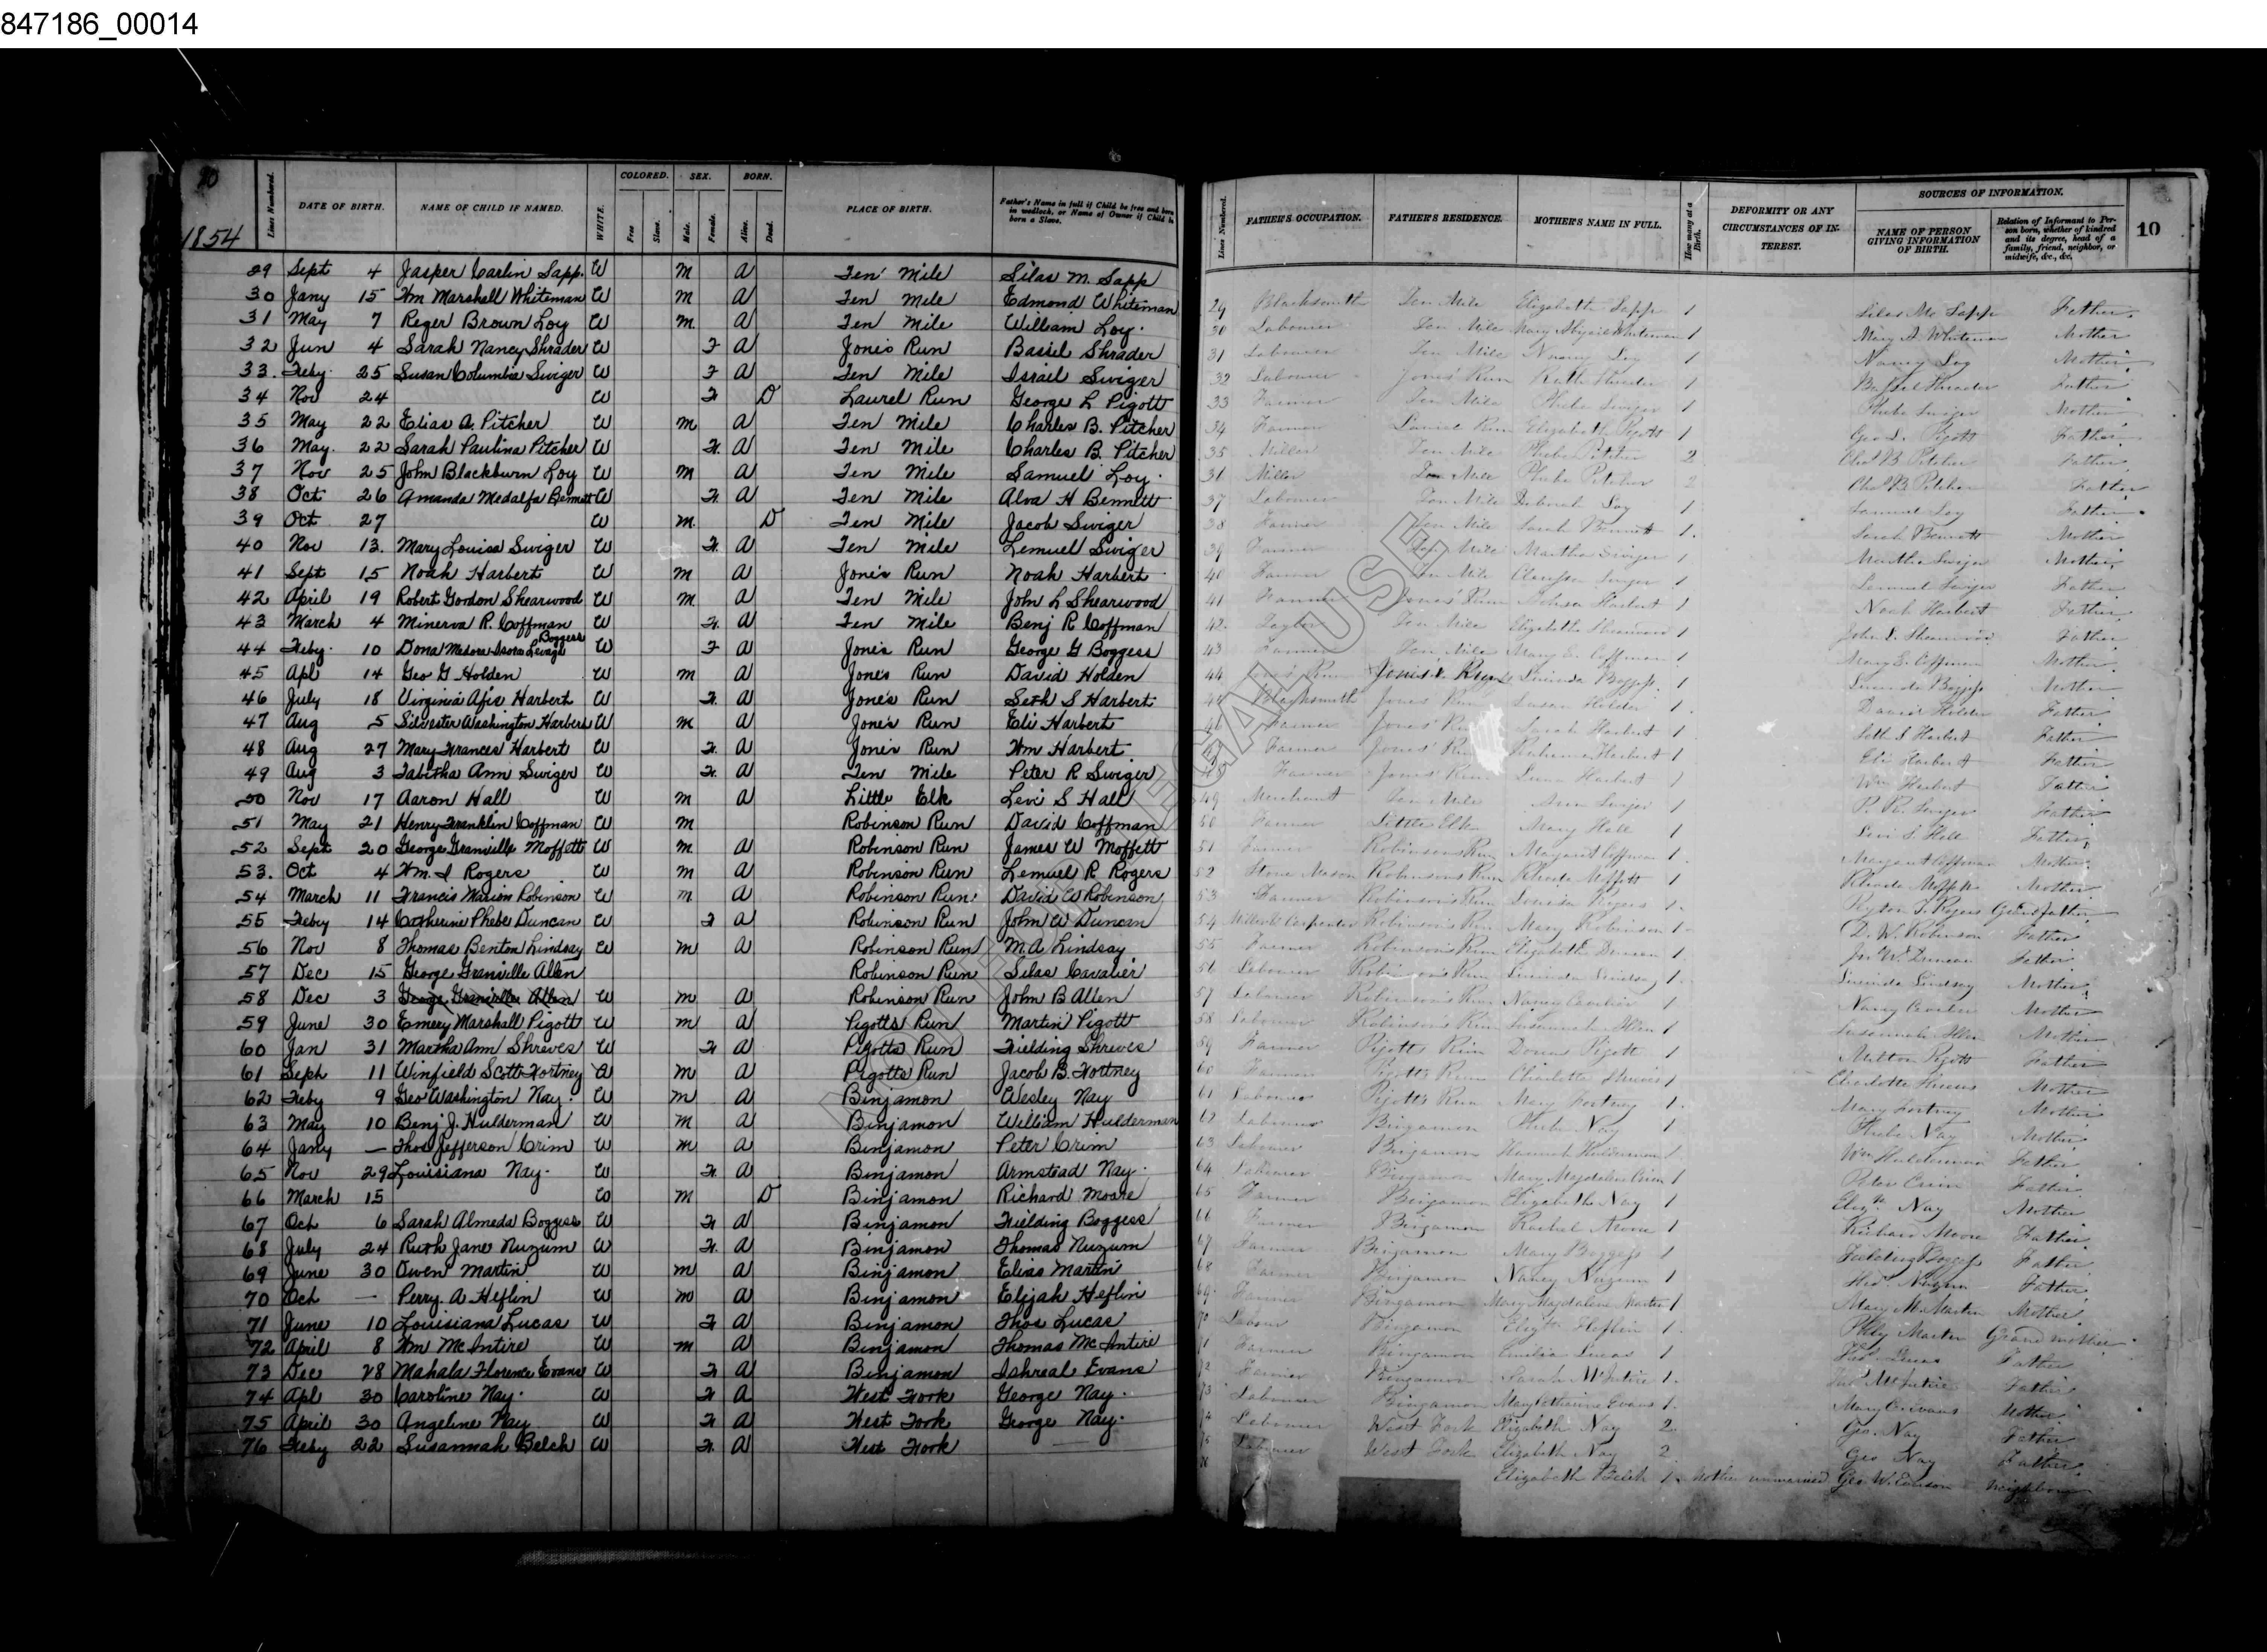 847186_00014
10
1854
Lines Numbered. DATE OF BIRTH. NAME OF CHILD IF NAMED. WHITE. COLORED. Free Slave. SEX. Male. Female. BORN. Alive. Dead. PLACE OF BIRTH. Father's Name in full if Child be free and born in wedlock, or Name of Owner if Child be born a Slave.
29 Sept 4 Jasper Carlin Sapp. W M A Ten Mile Silas M. Sapp
30 Jany 15 Wm Marshall Whiteman W M A Ten Mile Edmond Whiteman
31 May 7 Reger Brown Loy W M A Ten Mile William Loy.
32 Jun 4 Sarah Nancy Shrader W F A Jone's Run Bassel Shrader
33. Feby. 25 Susan Columbia Swiger W F A Ten Mile Israel Swiger
34 Nov 24 W F D Laurel Run George L Pigott
35 May 22 Elias A. Pitcher W M A Ten Mile Charles B. Pitcher
36 May. 22 Sarah Paulina Pitcher W F. A Ten Mile Charles B. Pitcher
37 Nov 25 John Blackburn Loy W M A Ten Mile Samuel Loy.
38 Oct 26 Amanda Medalfa Bennett W F. A Ten Mile Alva H Bennett
39 Oct 27 W M. D Ten Mile Jacob Swiger
40 Nov 13. Mary Louisa Swiger W F. A Ten Mile Lemuel Swiger
41 Sept 15 Noah Harbert W M A Jone's Run Noah Harbert
42 April 19 Robert Gordon Shearwood W M A Ten Mile John L Shearwood
43 March 4 Minerva R. Coffman W F. A Ten Mile Benj R Coffman
44 Feby. 10 Dona Medora Isora Boggess W F A Jone's Run George G Boggess
45 Apl 14 Geo G Holden W M A Jone's Run David Holden
46 July 18 Virginia Harbert W F. A Jone's Run Seth S Harbert
47 Aug 5 Silvester Washington Harbert W M A Jone's Run Eli Harbert
48 Aug 27 Mary Frances Harbert W F. A Jone's Run Wm Harbert
49 Aug 3 Tabitha Ann Swiger W F. A Ten Mile Peter R Swiger
50 Nov 17 Aaron Hall W M A Little Elk Levi S Hall
51 May 21 Henry Franklin Coffman W M Robinson Run David Coffman
52 Sept 20 George Granville Moffett W M. A Robinson Run James W Moffett
53. Oct 4 Wm. I Rogers W M A Robinson Run Lemuel R Rogers
54 March 11 Francis Marion Robinson W M A Robinson Run David W Robinson
55 Feby 14 Catherine Phebe Duncan W F A Robinson Run John W Duncan
56 Nov 8 Thomas Benton Lindsay W M A Robinson Run M. A. Lindsay
57 Dec 15 George Granville Allen Robinson Run Silas Cavalier
58 Dec 3 George Granville Allen W M A Robinson Run John B Allen
59 June 30 Emery Marshall Pigott W M A Pigotts Run Martin Pigott
60 Jan 31 Martha Ann Shreves W F A Pigotts Run Fielding Shreves
61 Seph 11 Winfield Scott Fortney W M A Pigotts Run Jacob B. Fortney
62 Feby 9 Geo Washington Nay. W M A Binjamon Wesley Nay
63 May 10 Benj J. Hulderman W M A Binjamon William Hulderman
64 Jany — Thos Jefferson Crim W M A Binjamon Peter Crim
65 Nov 29 Louisiana Nay. W F. A Binjamon Armstead Nay.
66 March 15 W M D Binjamon Richard Moore
67 Och 6 Sarah Almeda Boggess W F A Binjamon Fielding Boggess
68 July 24 Ruth Jane Nuzum W F. A Binjamon Thomas Nuzum
69 June 30 Owen Martin W M A Binjamon Elias Martin
70 Och — Perry. A Heflin W M A Binjamon Elijah Heflin
71 June 10 Louisiana Lucas W F A Binjamon Thos Lucas
72 April 8 Wm McIntire W M A Binjamon Thomas McIntire
73 Dec 28 Mahala Florence Evans W F A Binjamon Ishreal Evans
74 Apl 30 Caroline Nay. W F A West Fork George Nay.
75 April 30 Angeline Nay W F A West Fork George Nay.
76 Feby 22 Susannah Belch W F. A West Fork —
Lines Numbered. FATHER'S OCCUPATION. FATHER'S RESIDENCE. MOTHER'S NAME IN FULL. How many at a Birth. DEFORMITY OR ANY CIRCUMSTANCES OF INTEREST. SOURCES OF INFORMATION. NAME OF PERSON GIVING INFORMATION OF BIRTH. Relation of Informant to Person born, whether of kindred and its degree, head of a family, friend, neighbor, or midwife, &c., &c. 10
29 Blacksmith Ten Mile Elizabeth Sapp 1 Silas M. Sapp Father.
30 Labourer Ten Mile Mary Abigail Whiteman 1 Mary A. Whiteman Mother
31 Labourer Ten Mile Nancy Loy 1 Nancy Loy Mother
32 Labourer Jones' Run Ruth Shrader 1 Bassel Shrader Father
33 Farmer Ten Mile Phebe Swiger 1 Phebe Swiger Mother
34 Farmer Laurel Run Elizabeth Pigott 1 Geo L. Pigott Father
35 Miller Ten Mile Phebe Pitcher 2 Chas B. Pitcher Father
36 Miller Ten Mile Phebe Pitcher 2 Chas B. Pitcher Father
37 Labourer Ten Mile Deborah Loy 1 Samuel Loy Father
38 Farmer Ten Mile Sarah Bennett 1. Sarah Bennett Mother
39 Farmer Ten Mile Martha Swiger 1 Martha Swiger Mother
40 Farmer Ten Mile Swiger 1 Lemuel Swiger Father
41 Farmer Jones' Run Harbert 1 Noah Harbert Father
42. Ten Mile Elizabeth Shearwood 1 John L. Shearwood Father
43 Farmer Ten Mile Mary E. Coffman 1 Mary E. Coffman Mother
44 Jones' Run Jones's Run Lucinda Boggess 1 Lucinda Boggess Mother
45 Blacksmith Jones' Run Susan Holden 1. David Holden Father
46 Farmer Jones' Run Sarah Harbert 1. Seth S Harbert Father
Farmer Jones' Run Harbert 1 Eli Harbert Father
48 Farmer Jones' Run Harbert 1 Wm Harbert Father
49 Merchant Ten Mile Ann Swiger 1 P. R. Swiger Father
50 Farmer Little Elk Mary Hall 1 Levi S. Hall Father
51 Farmer Robinson's Run Margaret Coffman 1. Margaret Coffman Mother
52 Stone Mason Robinson's Run Rhoda Moffett 1 Rhoda Moffett Mother
53 Farmer Robinson's Run Louisa Rogers 1. Rogers Grandfather
54 Carpenter Robinson's Run Mary Robinson 1 D. W. Robinson Father
55 Farmer Robinson's Run Elizabeth Duncan 1. Jno W. Duncan Father
56 Labourer Robinson's Run Lucinda Lindsay 1. Lucinda Lindsay Mother
57 Labourer Robinson's Run Nancy Cavalier 1 Nancy Cavalier Mother
58 Labourer Robinson's Run Susannah Allen 1 Susannah Allen Mother
59 Farmer Pigotts Run Pigott 1 Milton Pigott Father
60 Farmer Pigott's Run Charlotte Shreves 1 Charlotte Shreves Mother
61 Labourer Pigott's Run Mary Fortney 1. Mary Fortney Mother
62 Labourer Bingamon Phebe Nay 1 Phebe Nay Mother
63 Labourer Bingamon Hannah Hulderman 1 Wm Hulderman Father
64 Labourer Bingamon Mary Magdalene Crim 1 Peter Crim Father
65 Farmer Bingamon Elizabeth Nay 1 Elizth Nay Mother
66 Farmer Bingamon Rachel Moore 1 Richard Moore Father
67 Farmer Bingamon Mary Boggess 1 Fielding Boggess Father
68 Farmer Bingamon Nancy Nuzum 1 Thos Nuzum Father
69 Farmer Bingamon Mary Magdalene Martin 1 Mary M. Martin Mother
70 Labour Bingamon Elizth Heflin 1. Martin Grand mother
71 Farmer Bingamon Lucas 1 Thos Lucas Father
72 Farmer Bingamon Sarah McIntire 1. Thos McIntire Father
73 Labourer Bingamon Mary Catharine Evans 1. Mary C. Evans Mother
74 Labourer West Fork Elizabeth Nay 2. Geo. Nay Father
75 Labourer West Fork Elizabeth Nay 2 Geo Nay Father
76 Elizabeth Belch 1. Mother unmarried Geo W. neighbour